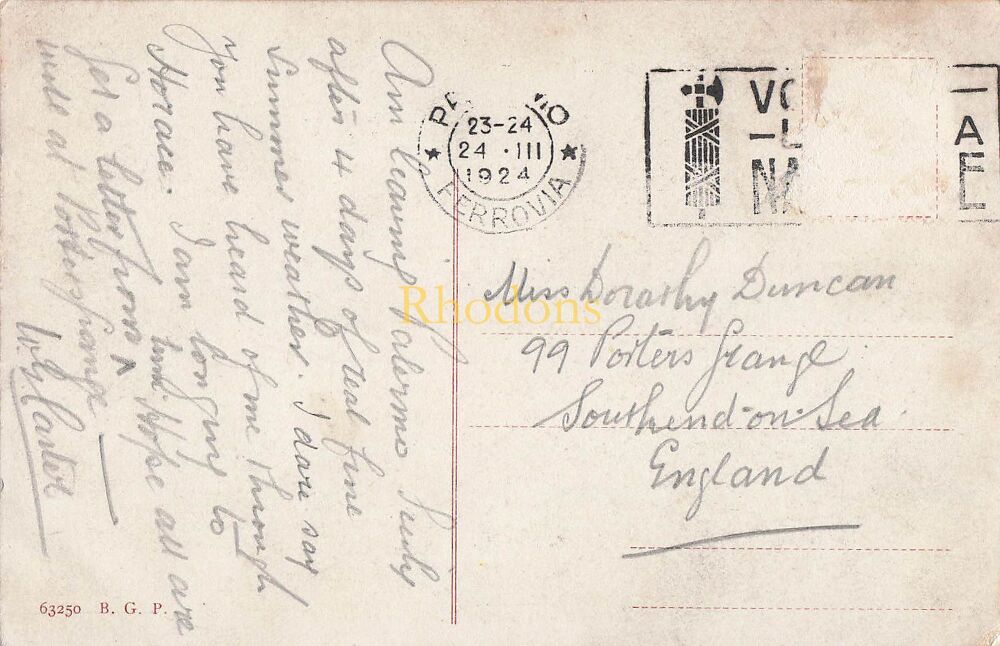 Am leaving Palermo Sicily
after 4 days of real fine
Summer weather. I dare say
you have heard of me through
Horace. I am longing to
get a letter from ^ him. Hope all are
well at Porters grange
W.G. Carter
23-24
24 · III
1924
FERROVIA
Miss Dorothy Duncan
99 Porters Grange
Southend-on-Sea
England
Rhodons
63250 B. G. P.